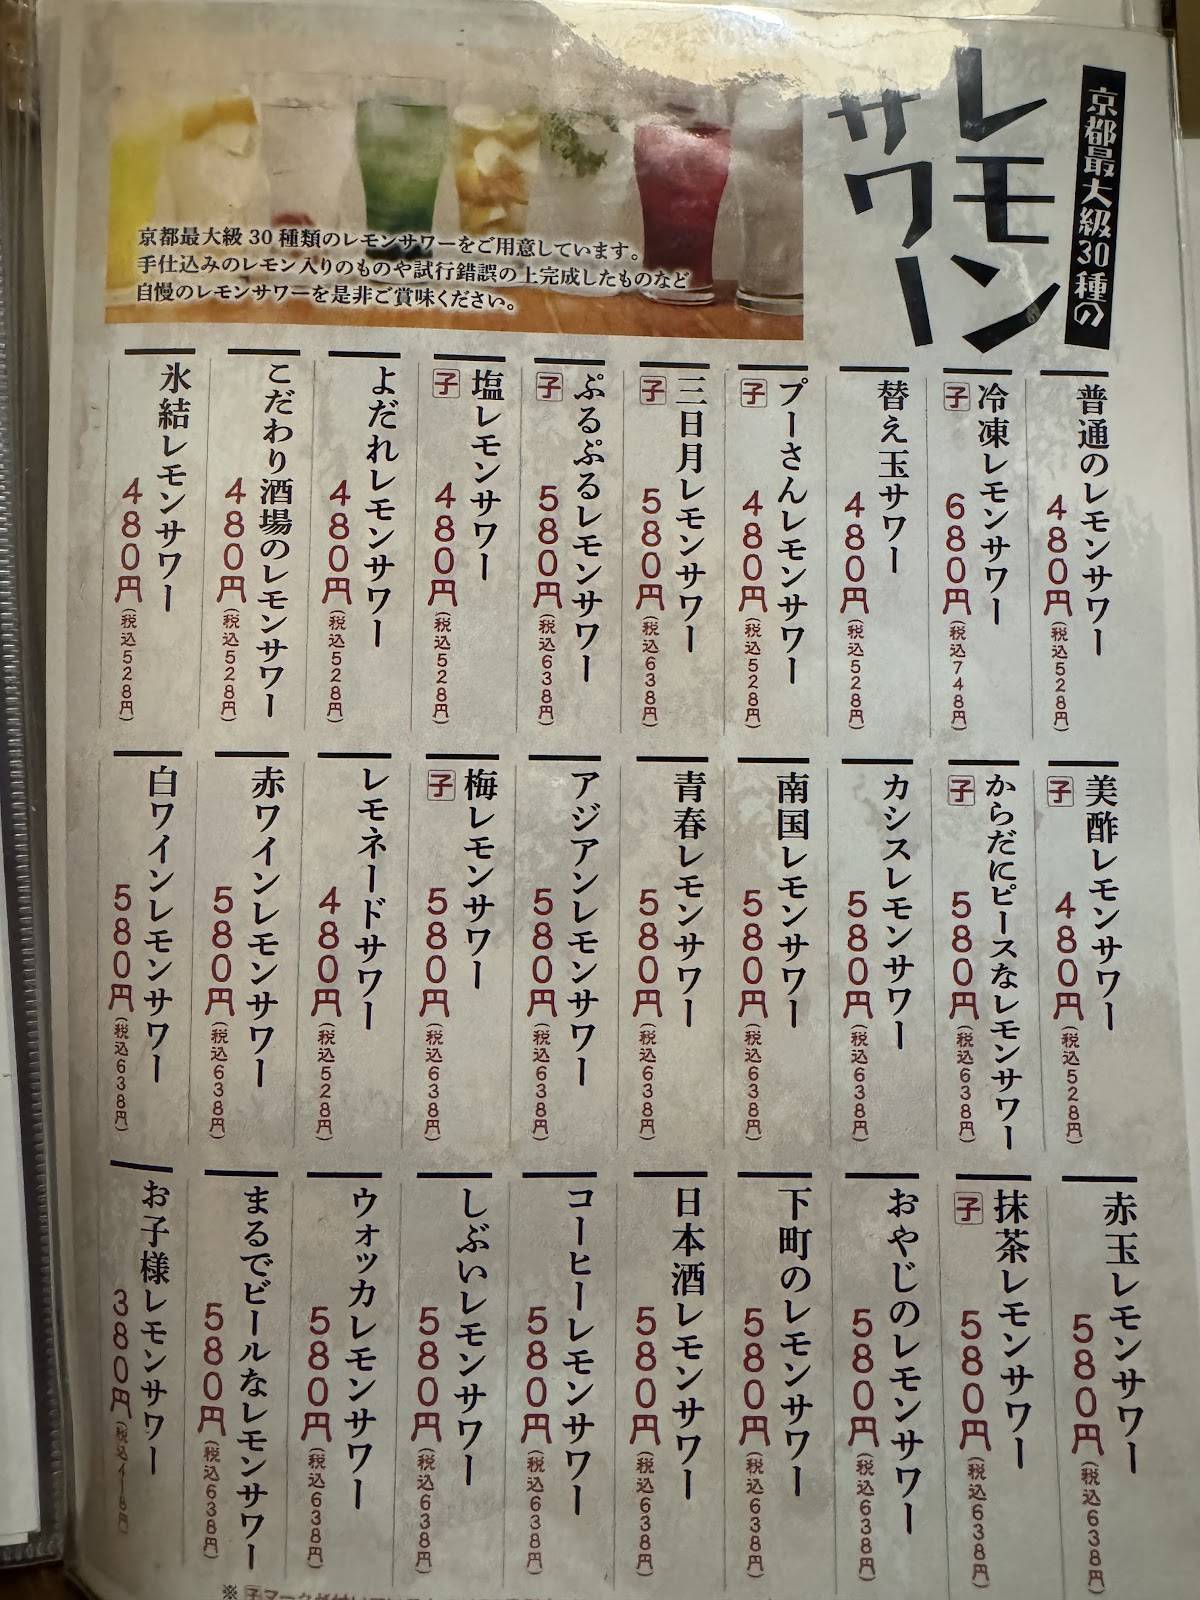 京都最大級30種の
レモン
サワー
京都最大級30種類のレモンサワーをご用意しています。
手仕込みのレモン入りのものや試行錯誤の上完成したものなど
自慢のレモンサワーを是非ご賞味ください。
普通のレモンサワー
480円(税込528円)
冷凍レモンサワー
子 680円(税込748円)
替え玉サワー
480円(税込528円)
プーさんレモンサワー
子 480円(税込528円)
三日月レモンサワー
子 580円(税込638円)
ぷるぷるレモンサワー
子 580円(税込638円)
塩レモンサワー
子 480円(税込528円)
よだれレモンサワー
480円(税込528円)
こだわり酒場のレモンサワー
480円(税込528円)
氷結レモンサワー
480円(税込528円)
美酢レモンサワー
子 480円(税込528円)
からだにピースなレモンサワー
子 580円(税込638円)
カシスレモンサワー
580円(税込638円)
南国レモンサワー
580円(税込638円)
青春レモンサワー
580円(税込638円)
アジアンレモンサワー
580円(税込638円)
梅レモンサワー
子 580円(税込638円)
レモネードサワー
480円(税込528円)
赤ワインレモンサワー
580円(税込638円)
白ワインレモンサワー
580円(税込638円)
赤玉レモンサワー
580円(税込638円)
抹茶レモンサワー
子 580円(税込638円)
おやじのレモンサワー
580円(税込638円)
下町のレモンサワー
580円(税込638円)
日本酒レモンサワー
580円(税込638円)
コーヒーレモンサワー
580円(税込638円)
しぶいレモンサワー
580円(税込638円)
ウォッカレモンサワー
580円(税込638円)
まるでビールなレモンサワー
580円(税込638円)
お子様レモンサワー
380円(税込418円)
※子マークが付いて